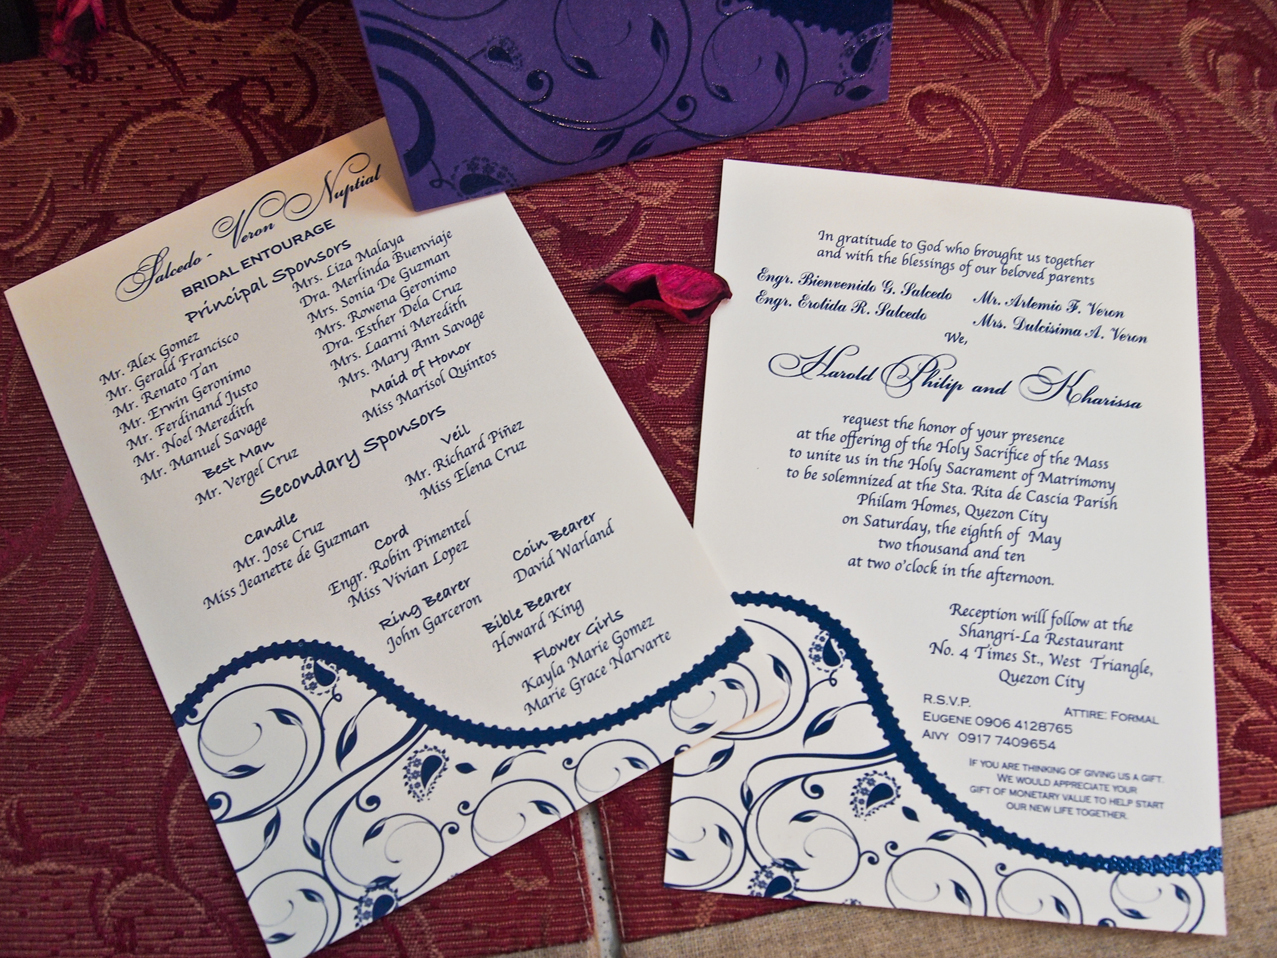 Salcedo - Veron Nuptial
BRIDAL ENTOURAGE
Principal Sponsors
Mr. Alex Gomez
Mr. Gerald Francisco
Mr. Renato Tan
Mr. Erwin Geronimo
Mr. Ferdinand Justo
Mr. Noel Meredith
Mr. Manuel Savage
Mrs. Liza Malaya
Dra. Merlinda Buenviaje
Mrs. Sonia De Guzman
Mrs. Rowena Geronimo
Dra. Esther Dela Cruz
Mrs. Laarni Meredith
Mrs. Mary Ann Savage
Best Man
Mr. Vergel Cruz
Maid of Honor
Miss Marisol Quintos
Secondary Sponsors
Candle
Mr. Jose Cruz
Miss Jeanette de Guzman
Veil
Mr. Richard Piñez
Miss Elena Cruz
Cord
Engr. Robin Pimentel
Miss Vivian Lopez
Ring Bearer
John Garceron
Coin Bearer
David Warland
Bible Bearer
Howard King
Flower Girls
Kayla Marie Gomez
Marie Grace Narvarte
In gratitude to God who brought us together
and with the blessings of our beloved parents
Engr. Bienvenido G. Salcedo
Engr. Erotida R. Salcedo
Mr. Artemio F. Veron
Mrs. Dulcisima A. Veron
We,
Harold Philip and Kharissa
request the honor of your presence
at the offering of the Holy Sacrifice of the Mass
to unite us in the Holy Sacrament of Matrimony
to be solemnized at the Sta. Rita de Cascia Parish
Philam Homes, Quezon City
on Saturday, the eighth of May
two thousand and ten
at two o'clock in the afternoon.
Reception will follow at the
Shangri-La Restaurant
No. 4 Times St., West Triangle,
Quezon City
R.S.V.P.
EUGENE 0906 4128765
AIVY 0917 7409654
ATTIRE: FORMAL
IF YOU ARE THINKING OF GIVING US A GIFT.
WE WOULD APPRECIATE YOUR
GIFT OF MONETARY VALUE TO HELP START
OUR NEW LIFE TOGETHER.